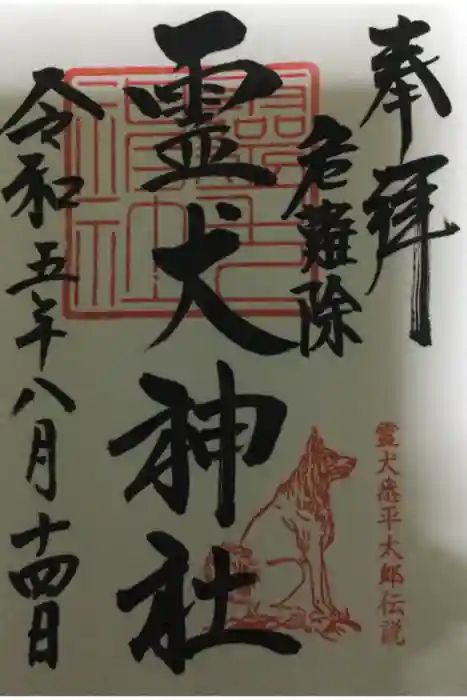 奉拝
危難除
霊犬神社
令和五年八月十四日
霊犬悉平太郎伝説